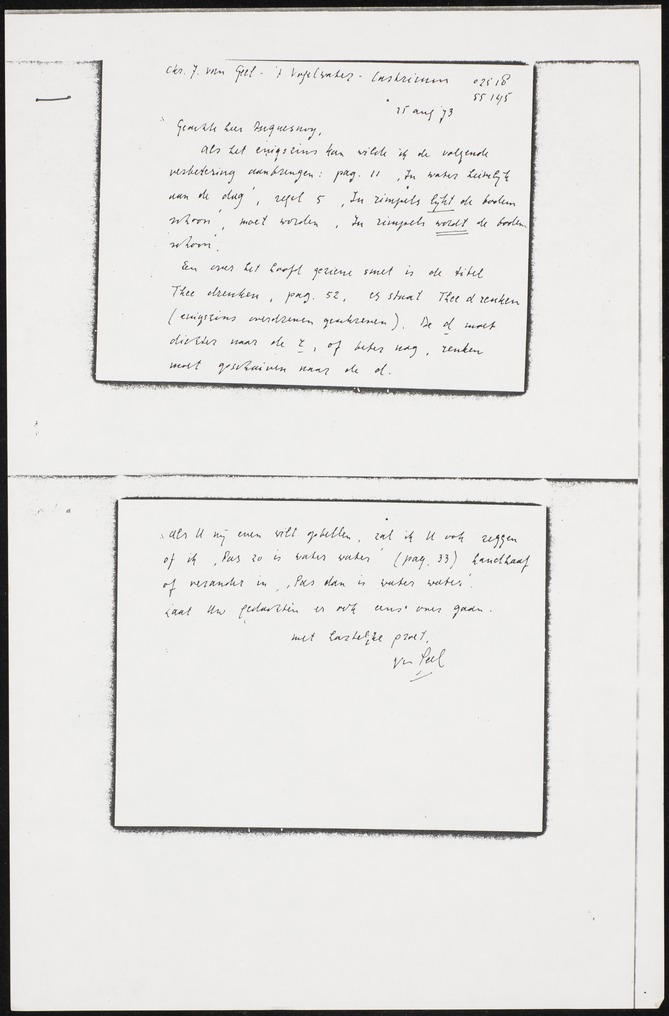 Chr. J. van Geel - 't Vogelwater - Castricum 02518
55145
25 aug '73
Geachte heer Duquesnoy,
Als het enigszins kan wilde ik de volgende
verbetering aanbrengen: pag. 11 'In water heimelijk
aan de dag', regel 5 'In rimpels lijkt de bodem
schoon', moet worden 'In rimpels wordt de bodem
schoon'.
Een over het hoofd geziene smet is de titel
Thee drenken, pag. 52, er staat Thee d renken
(enigszins overdreven geschreven). De d moet
dichter naar de r, of beter nog, renken
moet geschoven naar de d.
Als U mij even wilt opbellen, zal ik U ook zeggen
of ik 'Pas zo is water water' (pag. 33) handhaaf
of verander in 'Pas dan is water water'.
Laat Uw gedachten er ook eens over gaan.
met hartelijke groet,
van Geel